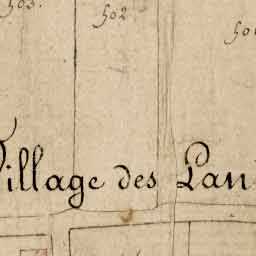 503.
502
Village des Pan